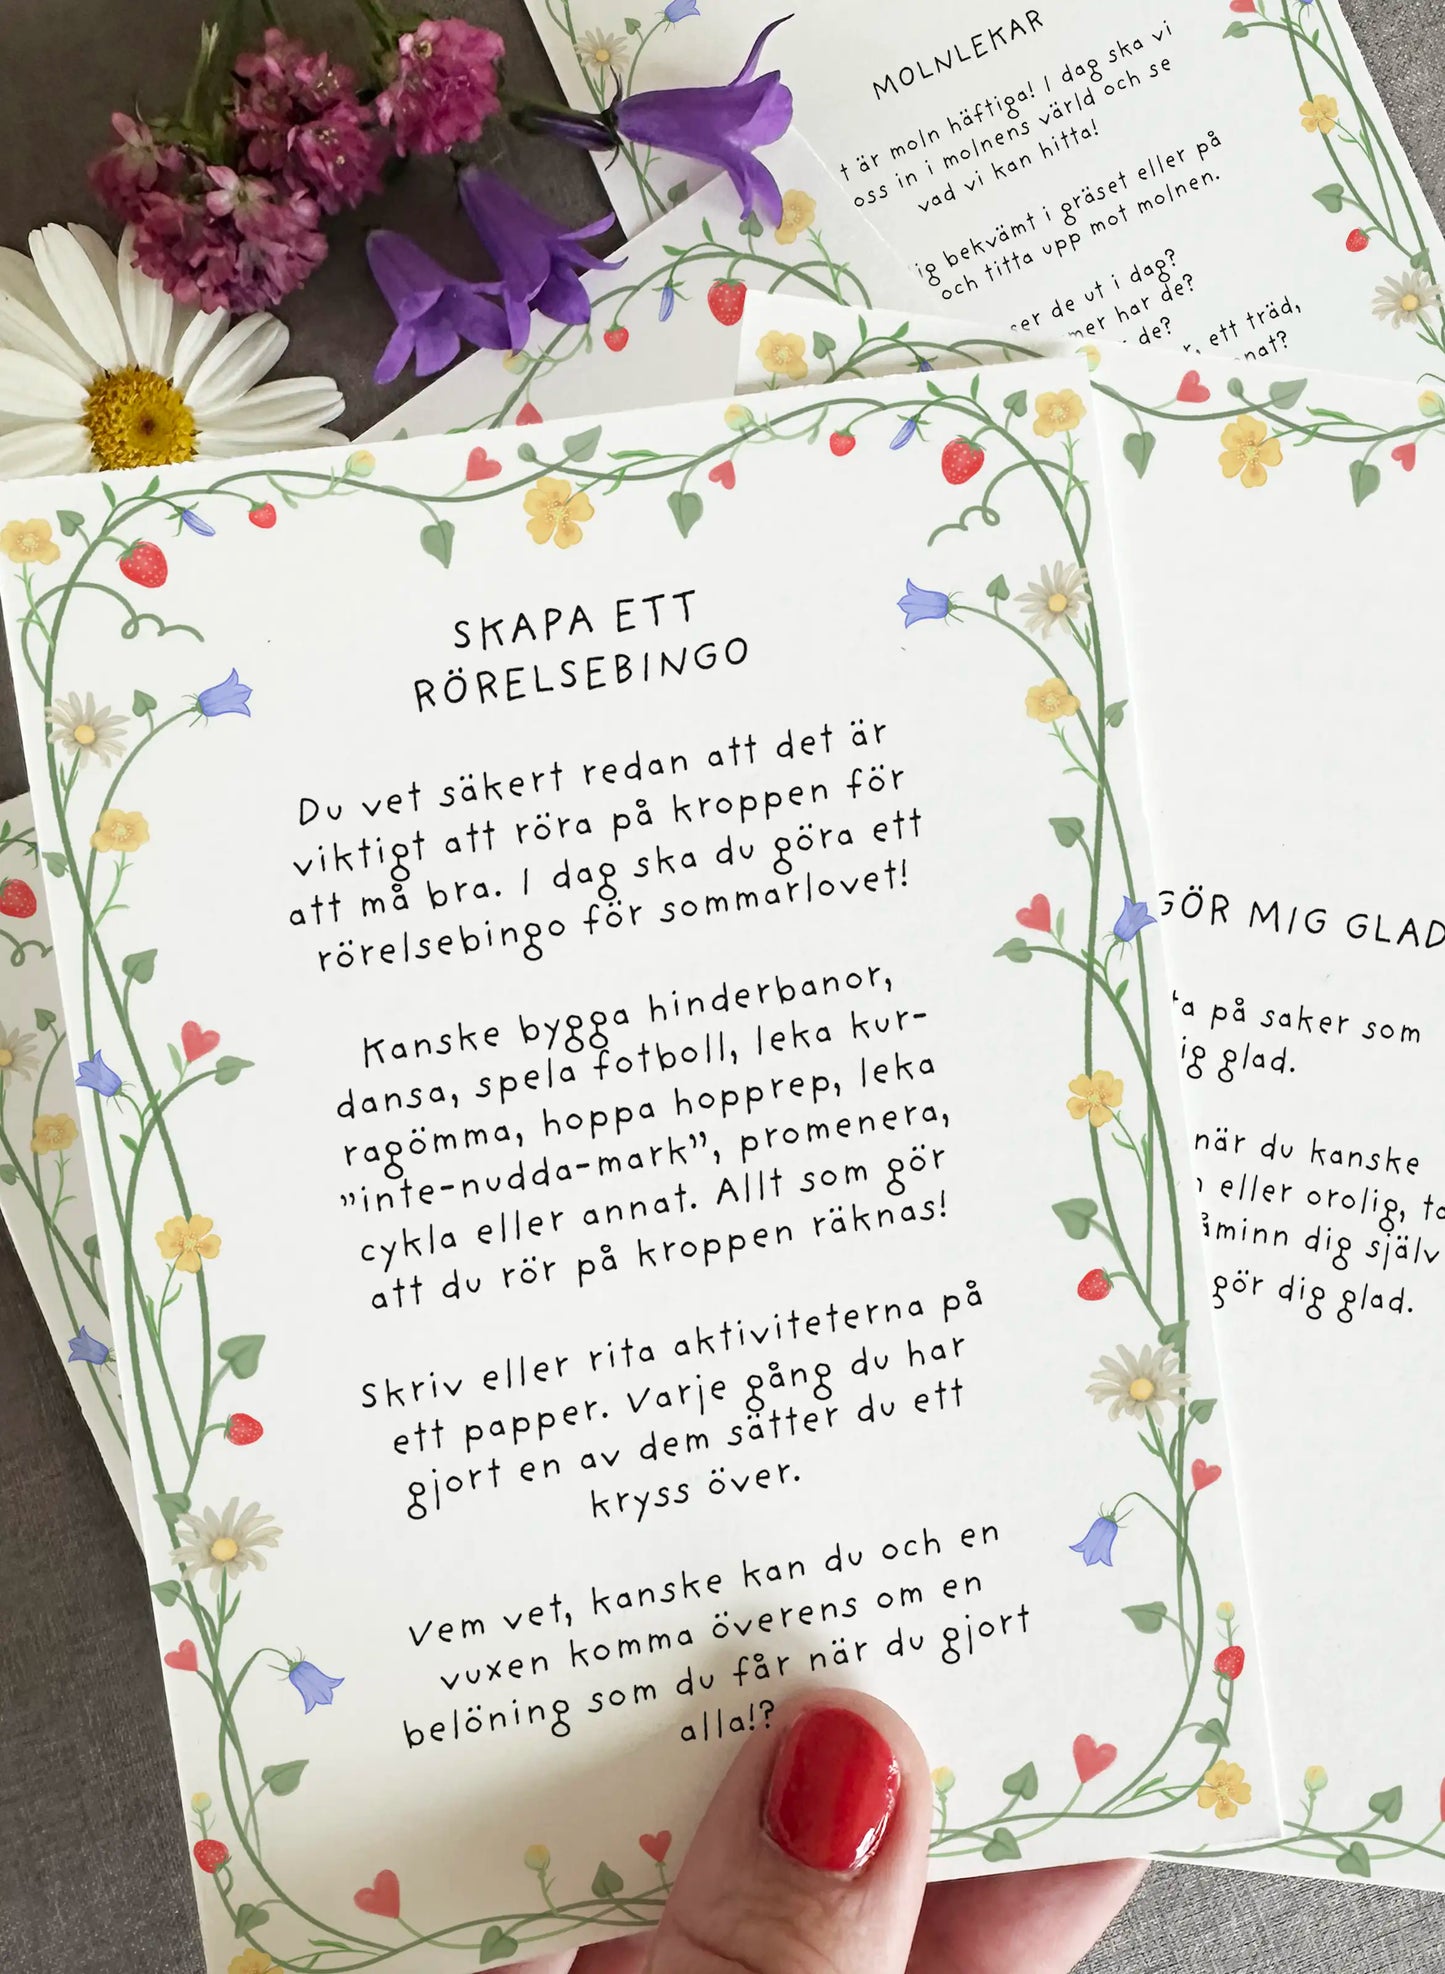 MOLNLEKAR
är moln häftiga! I dag ska vi
oss in i molnens värld och se
vad vi kan hitta!
bekvämt i gräset eller på
och titta upp mot molnen.
ser de ut i dag?
har de?
de?
ett träd,
SKAPA ETT
RÖRELSEBINGO
Du vet säkert redan att det är
viktigt att röra på kroppen för
att må bra. I dag ska du göra ett
rörelsebingo för sommarlovet!
Kanske bygga hinderbanor,
dansa, spela fotboll, leka kur-
ragömma, hoppa hopprep, leka
”inte-nudda-mark”, promenera,
cykla eller annat. Allt som gör
att du rör på kroppen räknas!
Skriv eller rita aktiviteterna på
ett papper. Varje gång du har
gjort en av dem sätter du ett
kryss över.
Vem vet, kanske kan du och en
vuxen komma överens om en
belöning som du får när du gjort
alla!?
GÖR MIG GLAD
på saker som
glad.
när du kanske
eller orolig,
dig själv
gör dig glad.